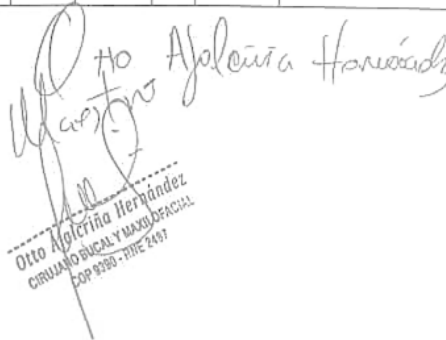 Otto Ajalcriña Hernández
Maestro
Otto Ajalcriña Hernández
CIRUJANO BUCAL Y MAXILOFACIAL
COP 9390 - RNE 2497